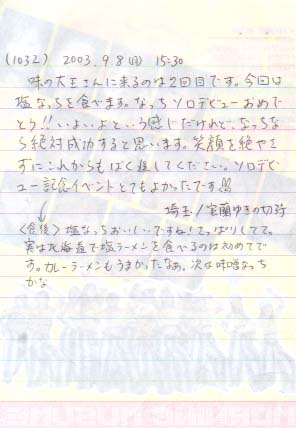 (1032) 2003.9.8(月) 15:30
味の大王さんに来るのは2回目です。今回は
塩なっちを食べます。なっちソロデビューおめで
とう!!いよいよという感じだけれど、なっちな
ら絶対成功すると思います。笑顔を絶やさ
ずにこれからもばく進してください。ソロデビ
ュー記念イベントとてもよかったです!!
埼玉/室蘭ゆきの切符
<食後>塩なっちおいしいですね!さっぱりしてて。
実は北海道で塩ラーメンを食べるのは初めてで
す。カレーラーメンもうまかったなぁ。次は味噌なっち
かな